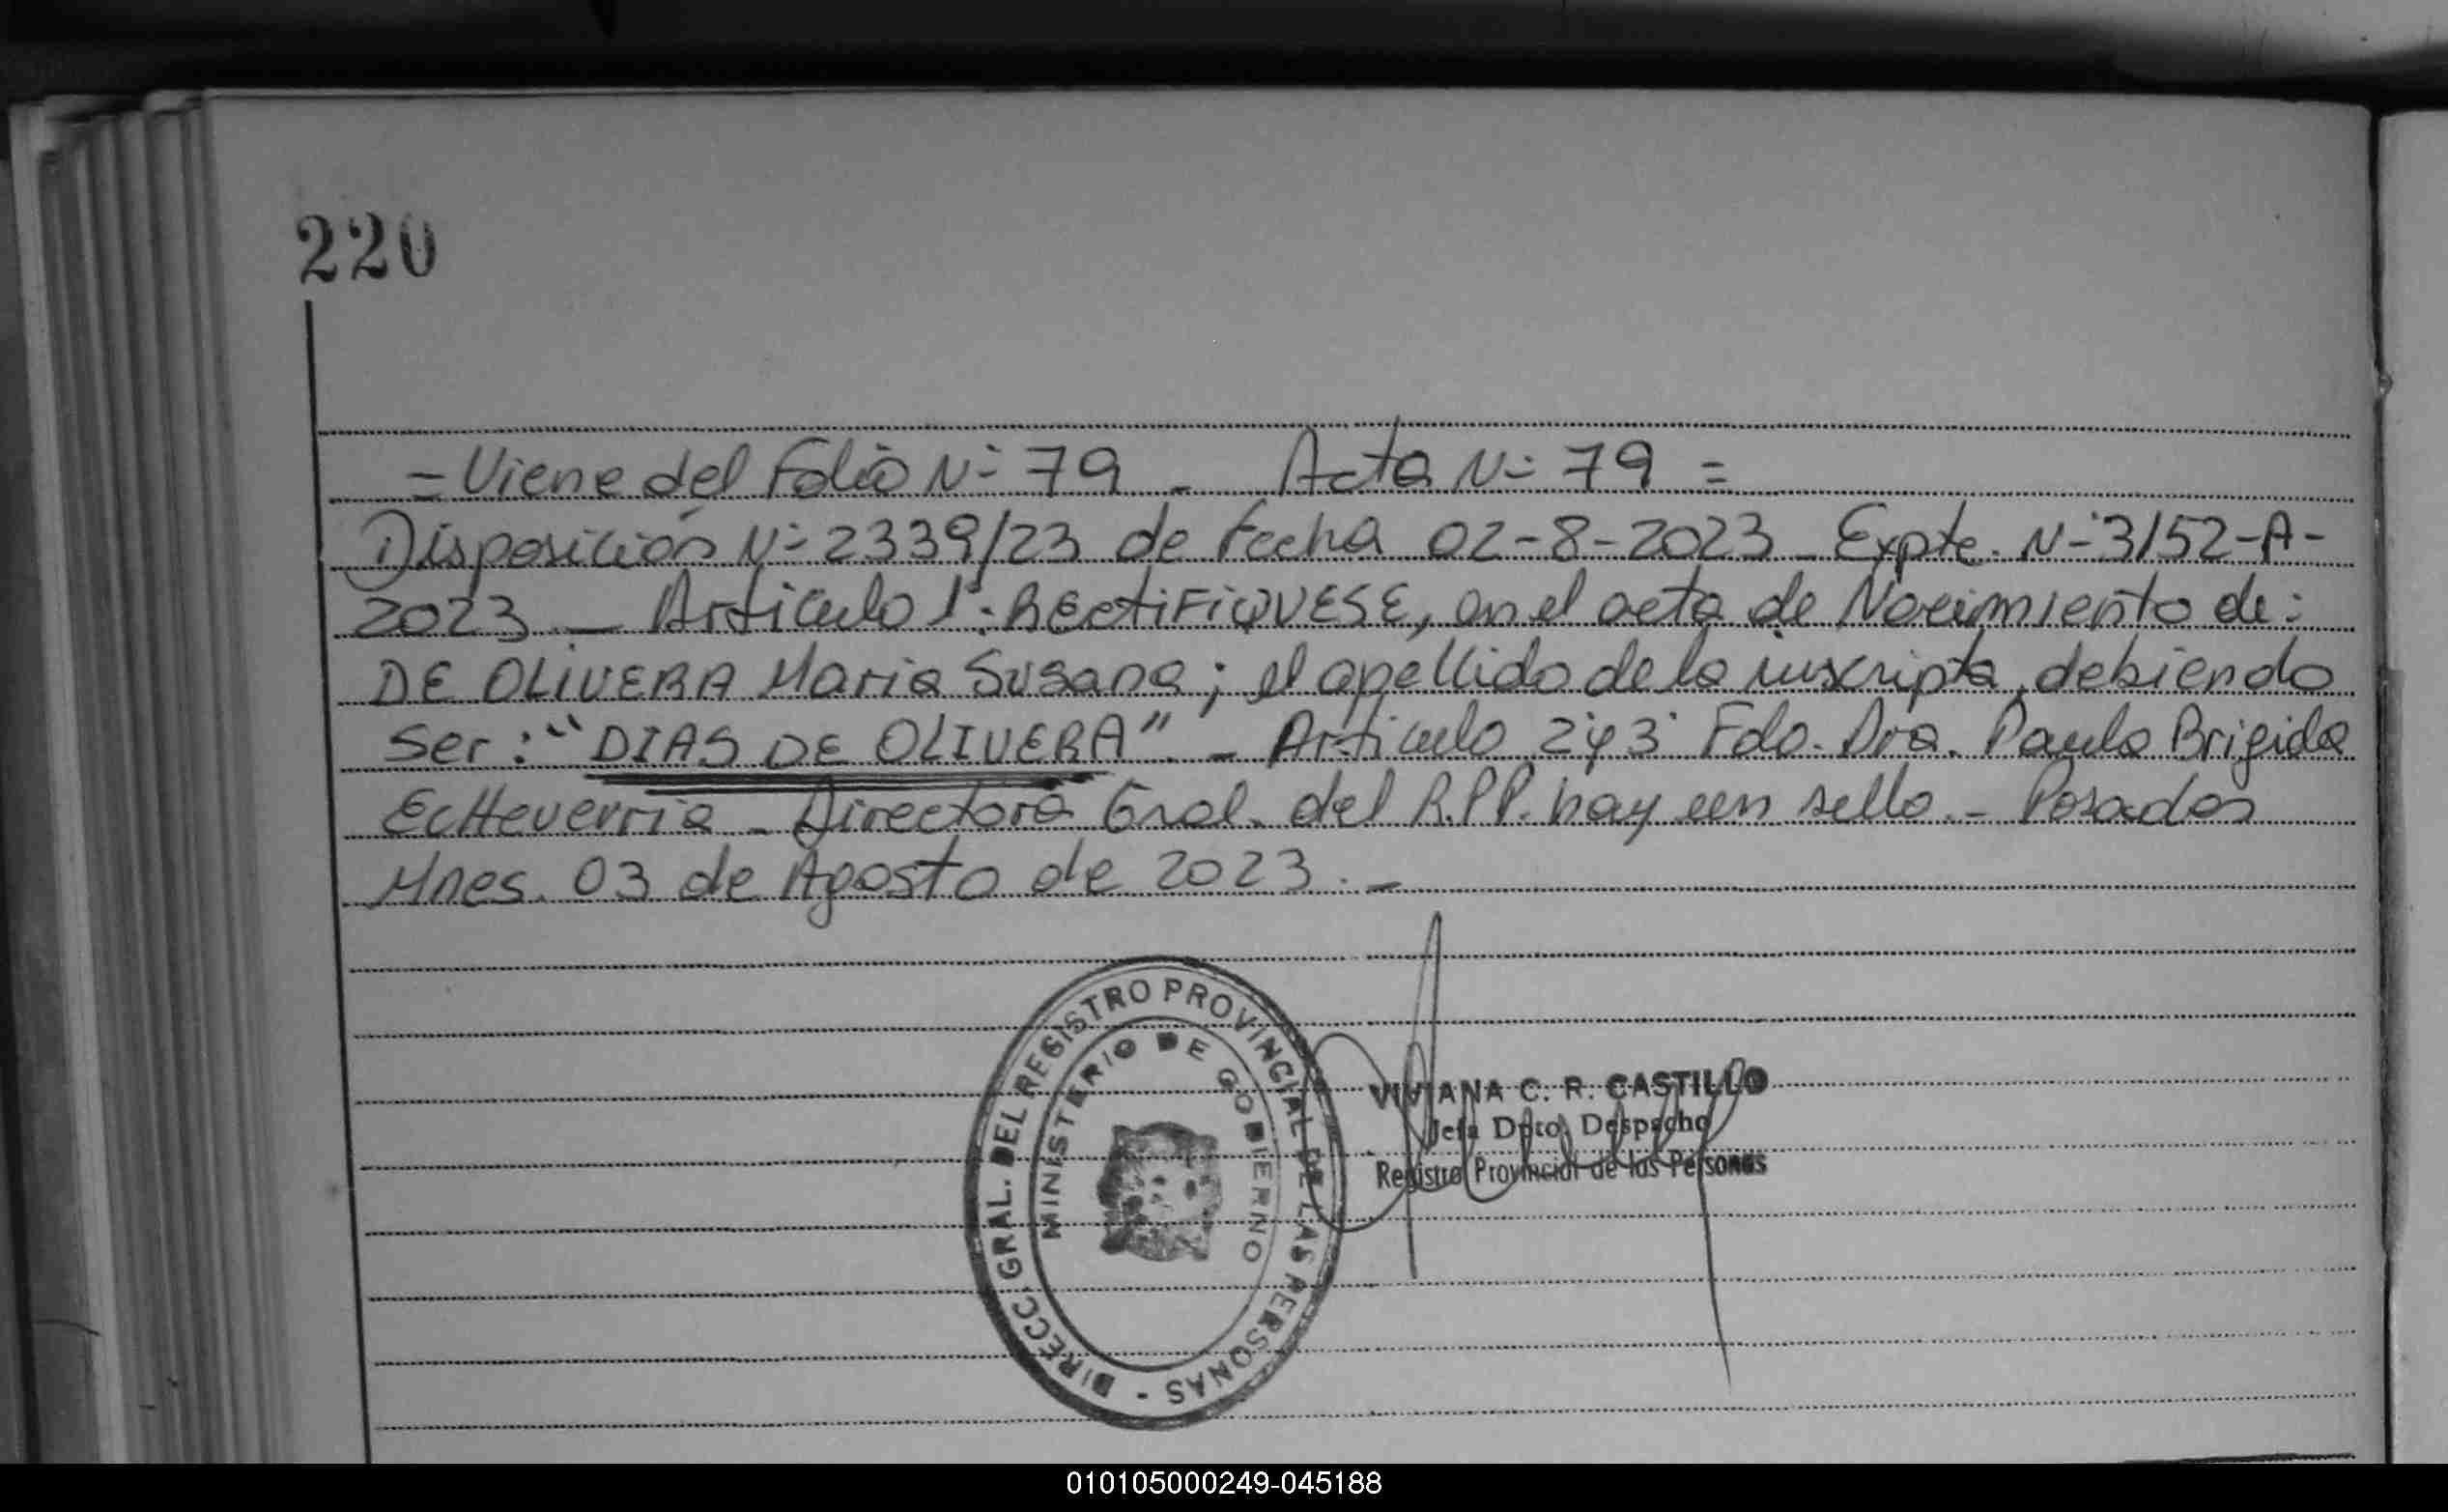 220
= Viene del Folio N° 79 - Acta N° 79 =
Disposición N° 2339/23 de Fecha 02-8-2023 - Expte. N° 3152-A-
2023 - Articulo 1°: RECTIFIQUESE, en el acta de Nacimiento de:
DE OLIVERA Maria Susana; el apellido de la inscripta, debiendo
Ser: "DIAS DE OLIVERA". - Articulo 2° y 3° Fdo. Dra. Paula Brigida
Echeverria - Directora Gral. del R.P.P. hay un sello. - Posadas
Mnes. 03 de Agosto de 2023. -
DIRECC. GRAL. DEL REGISTRO PROVINCIAL DE LAS PERSONAS -
MINISTERIO DE GOBIERNO
VIVIANA C. R. CASTILLO
Jefa Dpto. Despacho
Registro Provincial de las Personas
010105000249-045188